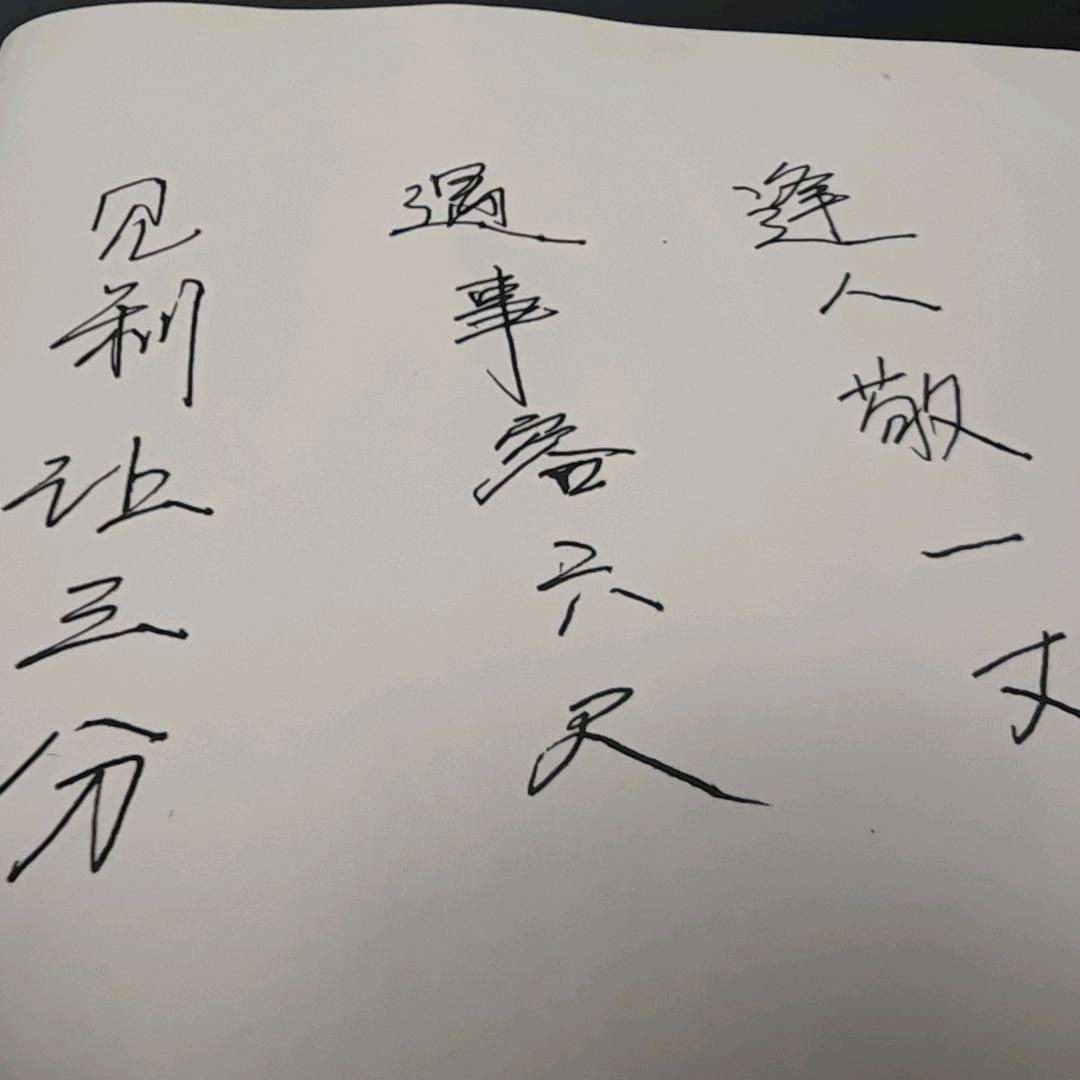 逢人敬一丈
遇事容六尺
见利让三分